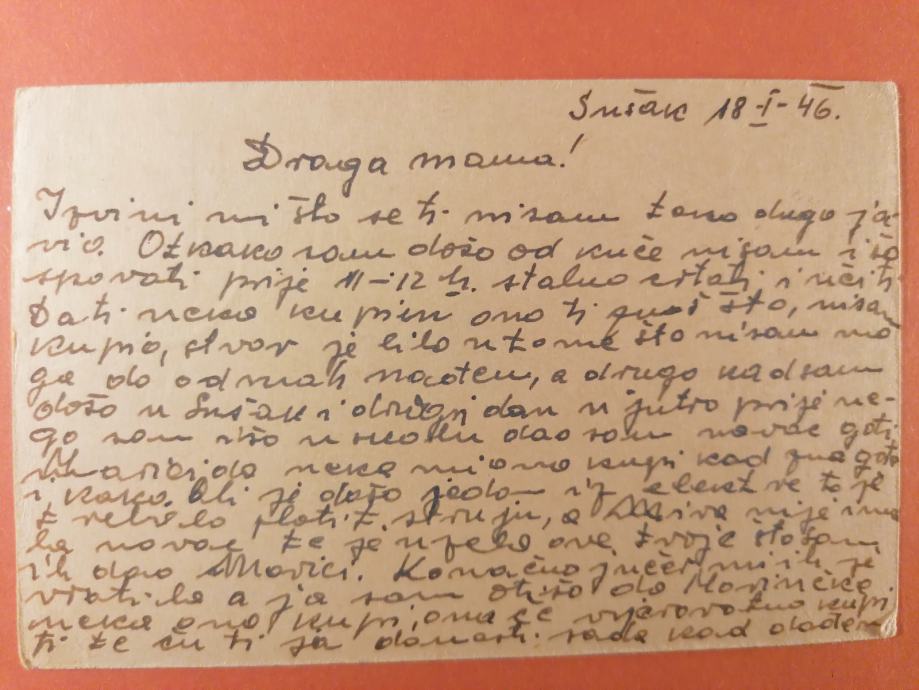 Sušak 18-I-46.
Draga mama!
Izvini mi što se ti nisam tako dugo ja-
vio. Otkako sam došo od kuće nisam išo
spavati prije 11-12 h. stalno crtati i učiti
Da ti neko kupim ono ti znaš što, nisam
kupio, stvar je bila u tome što nisam mo
ga do odmah naotem, a drugo kad sam
došo u Sušak i drugi dan u jutro prije ne-
go sam išo u školu dao sam novac goti
Marici da neka mi ono kupi kad zna gdje
i kako. Ali je došo jedan iz elektre to je
trebalo platit struju, a Mira nije ima
la novac te je uzela ove tvoje što sam
ih dao Marici. Konačno jučer mi ih je
vratila a ja sam otišo do Marinčka
neka ono kupi, ona će vjerovatno kupi
ti te ću ti ja donesti sada kad dođem